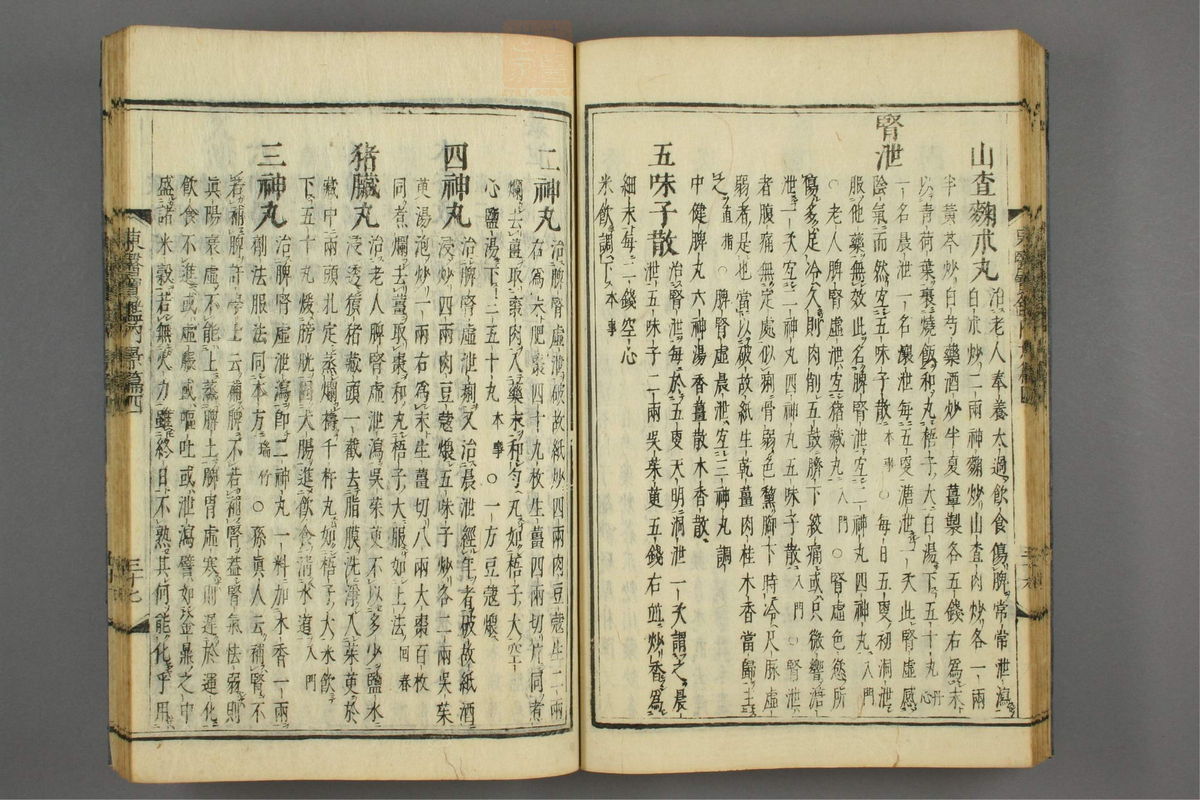 山查麴朮丸 治老人奉養太過飮食傷脾常常泄瀉
白朮炒二兩神麴炒山查肉炒各一兩
半黃芩炒白芍藥酒炒半夏薑製各五錢右爲末
以靑荷葉褁燒飯和丸梧子大白湯下五十丸 丹心
腎泄
一名晨泄一名瀼泄每五更溏泄一次此腎虛感
陰氣而然宜五味子散 本事 ○每日五更初洞泄
服他藥無效此名脾腎泄宜二神丸四神丸 入門
○老人脾腎虛泄宜猪臟丸 入門 ○腎虛色慾所
傷多足冷久則肉削五鼓臍下絞痛或只微響溏
泄一次宜二神丸四神丸五味子散 入門 ○腎泄
者腹痛無定處似痢骨弱色黧脚下時冷尺脉虛
弱者是也當以破故紙生乾薑肉桂木香當歸主
之 直指 ○脾腎虛晨泄宜三神丸調
中健脾丸六神湯香薑散木香散
五味子散 治腎泄每於五更天明洞泄一次謂之晨
泄五味子二兩吳茱萸五錢右並炒香爲
細末每二錢空心
米飮調下 本事
二神丸 治脾腎虛泄破故紙炒四兩肉豆蔻生二兩
右爲末肥棗四十九枚生薑四兩切片同煮
爛去薑取棗肉入藥末和勻丸如梧子大空
心鹽湯下三五十丸 本事 ○一方豆蔻煨
四神丸 治脾腎虛泄痢又治晨泄經年者破故紙酒
浸炒四兩肉豆蔻煨五味子炒各二兩吳茱
萸湯泡炒一兩右爲末生薑切八兩大棗百枚
同煮爛去薑取棗和丸梧子大服如上法 回春
猪臟丸 治老人脾腎虛泄瀉吳茱萸不以多少鹽水
浸透㹠猪臟頭一截去脂膜洗淨入茱萸於
臟中兩頭扎定蒸爛擣千杵丸如梧子大米飮
下五十丸煖膀胱固大腸進飮食淸水道 入門
三神丸 治脾腎虛泄瀉卽二神丸一料加木香一兩
劑法服法同本方 瑞竹 ○孫眞人云補腎不
若補脾許學士云補脾不若補腎盖腎氣法弱則
眞陽衰虛不能上蒸脾土脾胃虛寒則遲於運化
飮食不進或虛脹或嘔吐或泄瀉譬如釜鼎之中
盛諸米穀若無火力雖終日不熟其何能化乎用
三十七